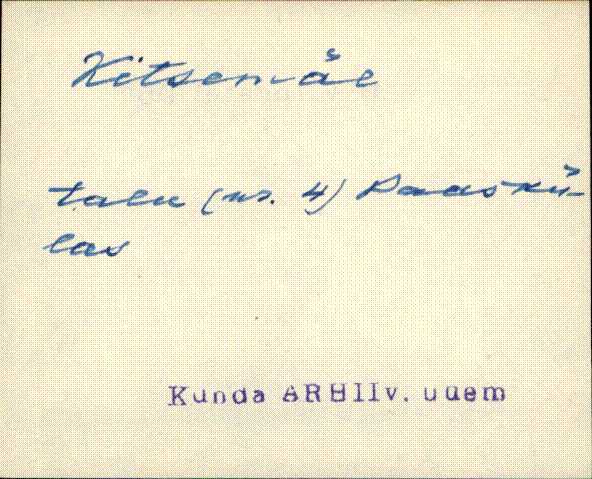 Kitsemäe
talu (nr. 4) Paaskü-
las
Kunda ARHIIv. uuem